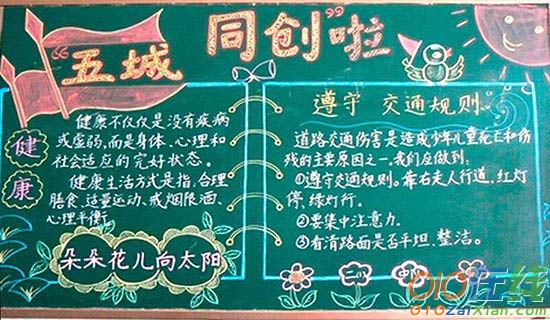 “五城 同创”啦
健康
健康不仅仅是没有疾病
或虚弱,而是身体、心理和
社会适应的完好状态。
健康生活方式是指,合理
膳食、适量运动、戒烟限酒、
心理平衡。
朵朵花儿向太阳
遵守 交通规则。
道路交通伤害是造成少年儿童死亡和伤
残的主要原因之一。我们应做到:
①遵守交通规则。靠右走人行道,红灯
停,绿灯行。
②要集中注意力。
③看清路面是否平坦、整洁。
二(1) 中队
010在线
010zaixian.com